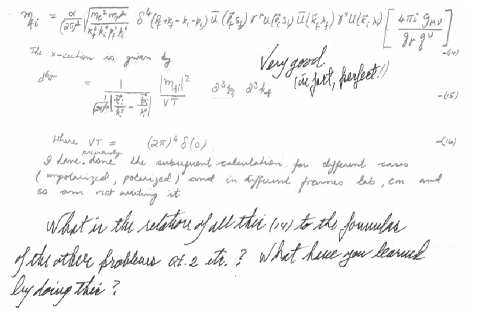 m_fi = α/(2π)² √(m_e² m_p² / k_f⁰ k_i⁰ p_f⁰ p_i⁰) δ⁴(p_f+k_f-k_i-p_i) ū(p_f s_f) γ^μ u(p_i s_i) ū(k_f λ_f) γ^ν u(k_i λ_i) [4πi g_μν / q_r q^r] —(14)
The x-section is given by
Very good
(in fact, perfect!)
|m_fi|² / VT d³p_f d³k_f —(15)
where VT = (2π)⁴ δ(0) —(16)
previously
I have done the subsequent calculation for different cases
(unpolarized, polarized) and in different frames lab, cm and
so am not writing it
What is the relation of all this (14) to the formulas
of the other problems of. 2 etc.? What have you learned
by doing this?